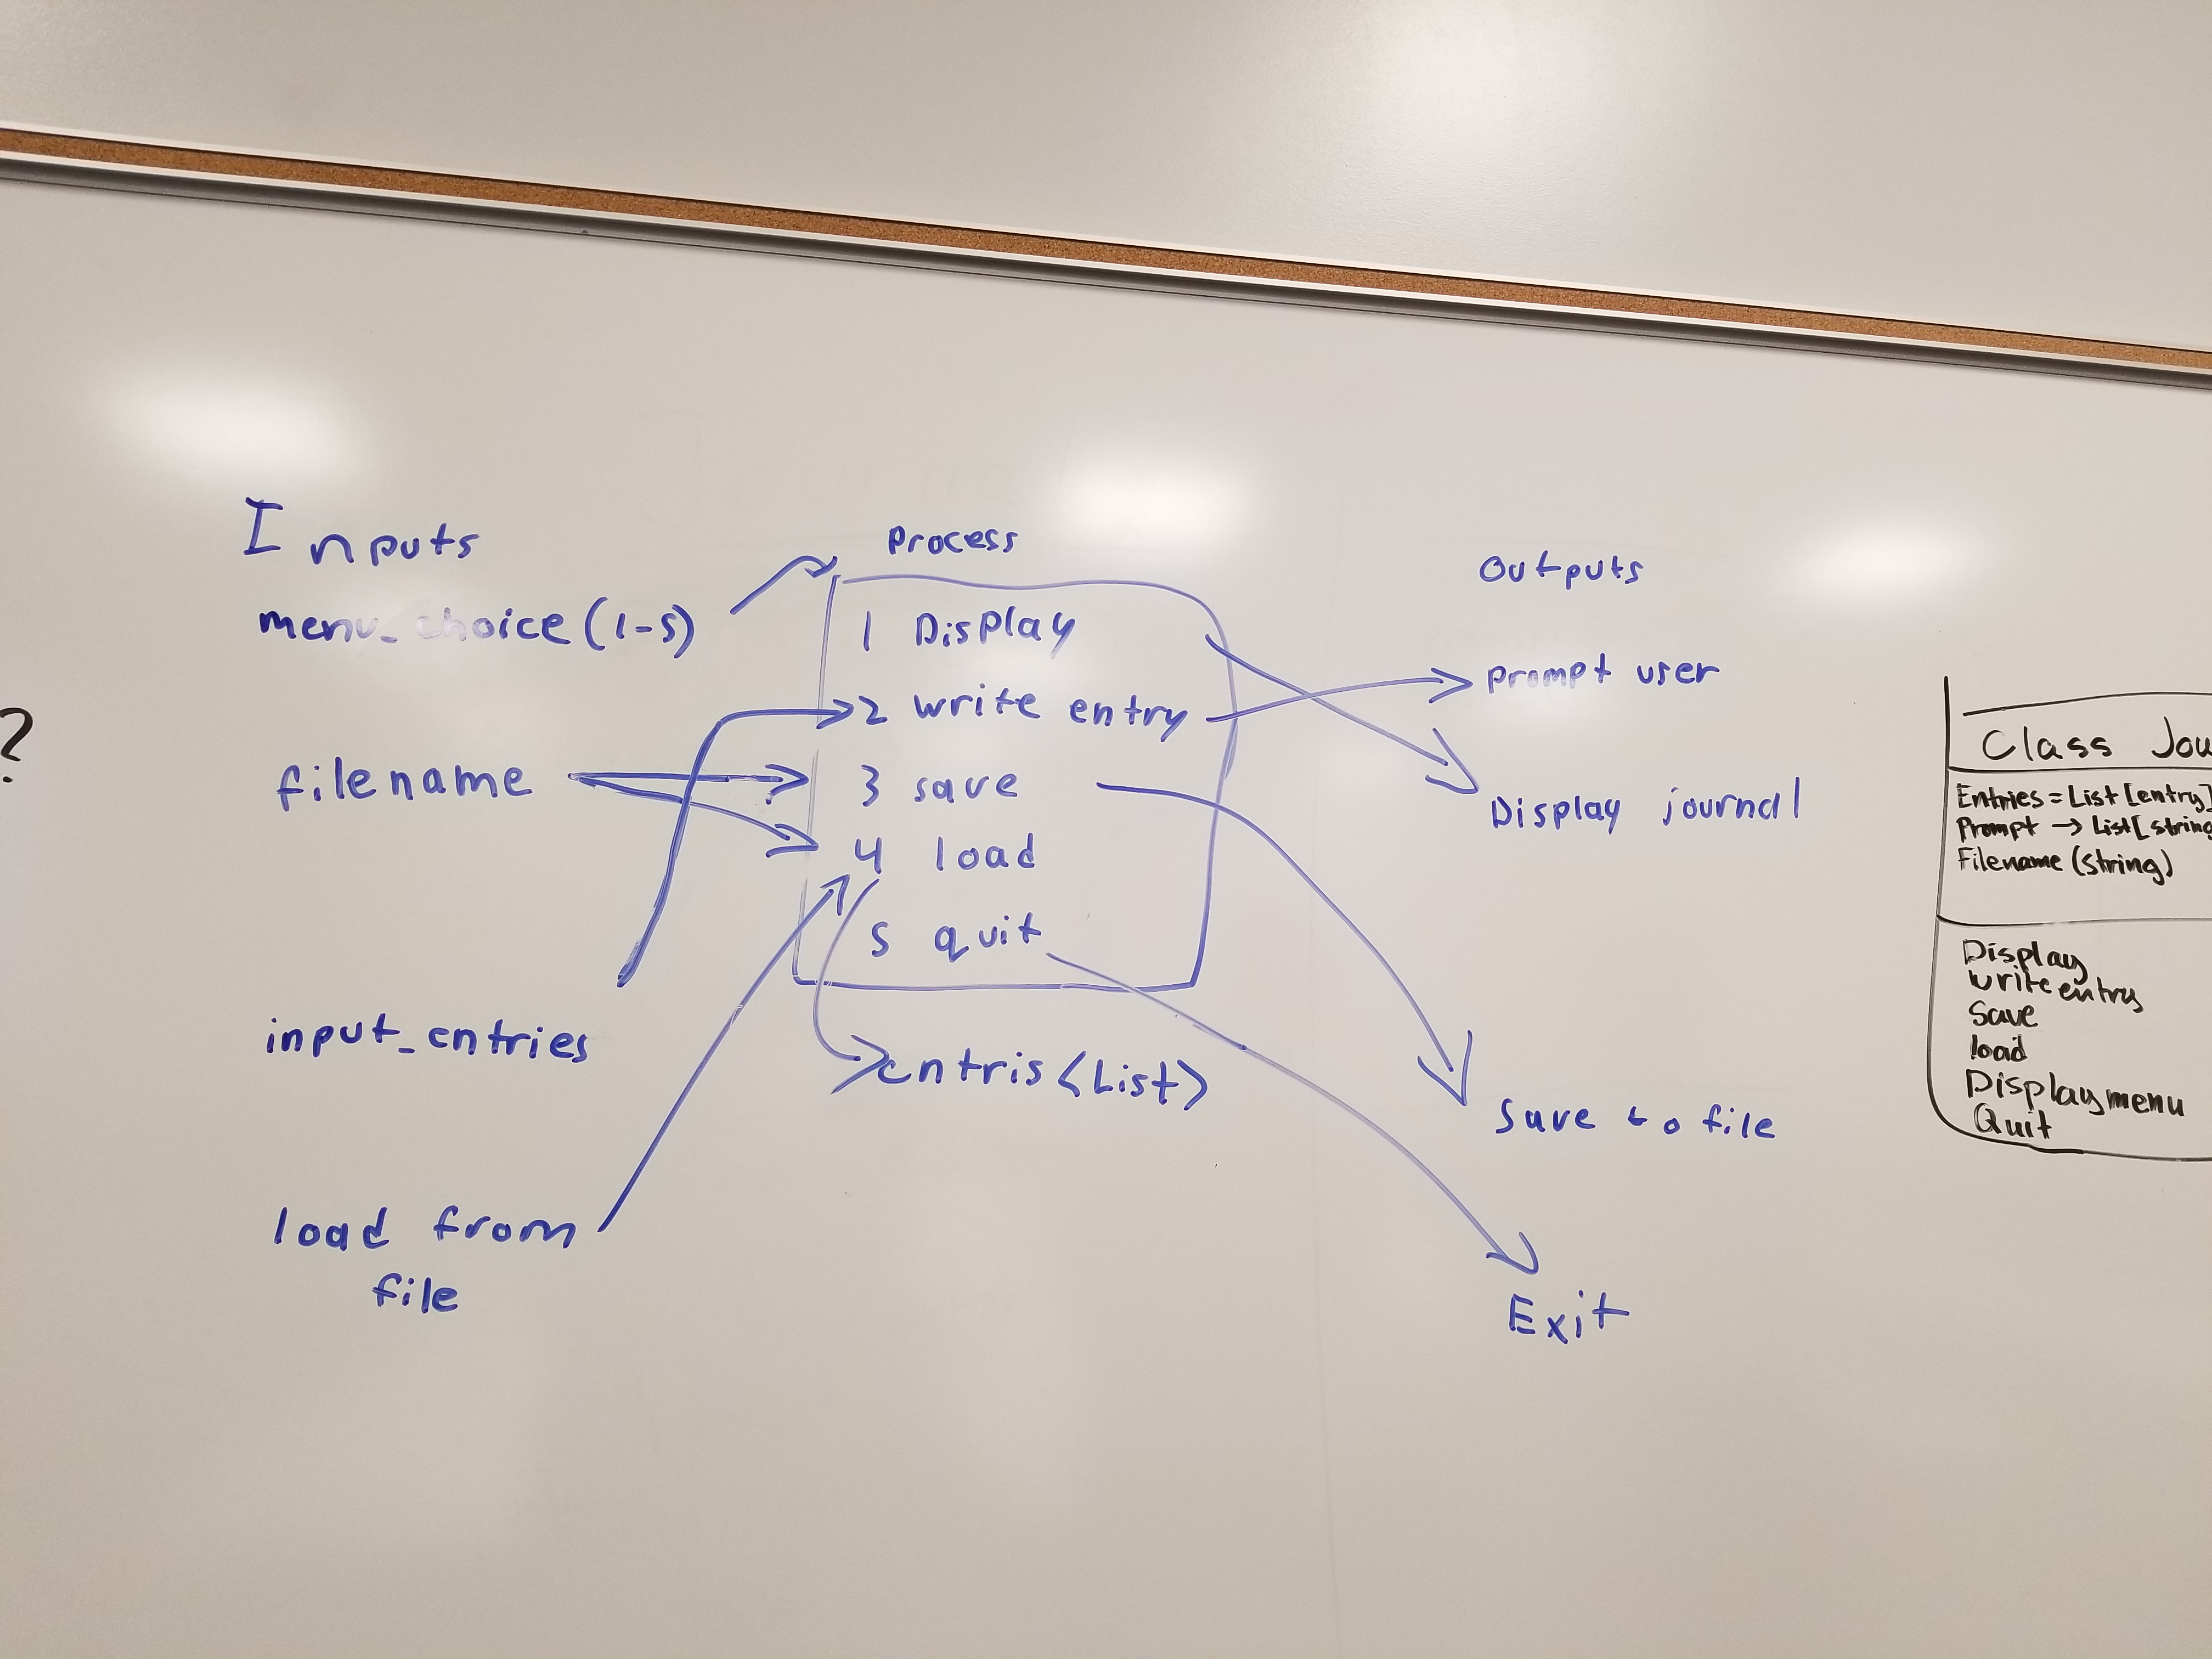 ?
Inputs
menu_choice(1-5)
filename
input_entries
load from
file
Process
1 Display
2 write entry
3 save
4 load
5 quit
entris<List>
Outputs
prompt user
Display journal
Save to file
Exit
Class Jou
Entries = List[entry]
Prompt → List[string
Filename (string)
Display
write entry
Save
load
Display menu
Quit